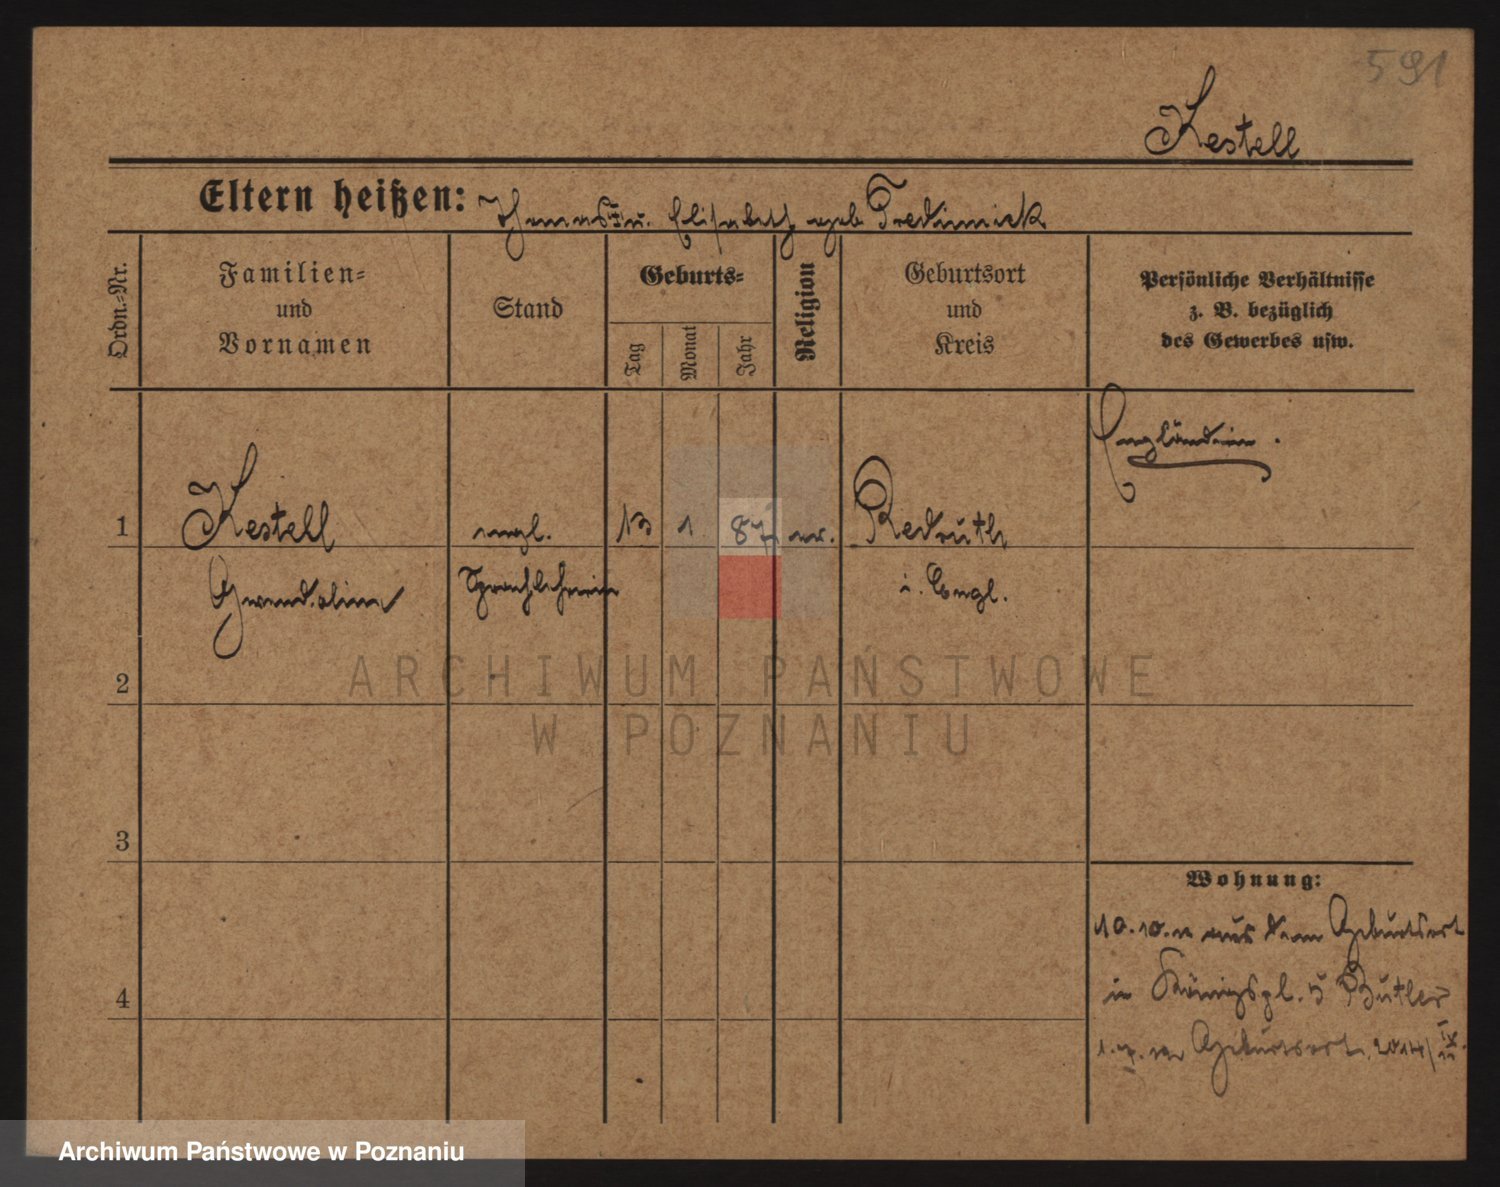 591
Kestell
Eltern heißen: Thomas u. Elisabeth geb Tredinnick
Ordn.=Nr.
Familien=
und
Vornamen
Stand
Geburts=
Tag
Monat
Jahr
Religion
Geburtsort
und
Kreis
Persönliche Verhältnisse
z. B. bezüglich
des Gewerbes usw.
Engländerin.
1 Kestell engl. 13 1. 87 Redruth
Gwendoline Sprachlehrerin i. Engl.
2
ARCHIWUM PAŃSTWOWE
W POZNANIU
3
Wohnung:
10.10. aus dem Geburtsort
in Königspl. 5 Butler
4
1. Geburtsort.
Archiwum Państwowe w Poznaniu